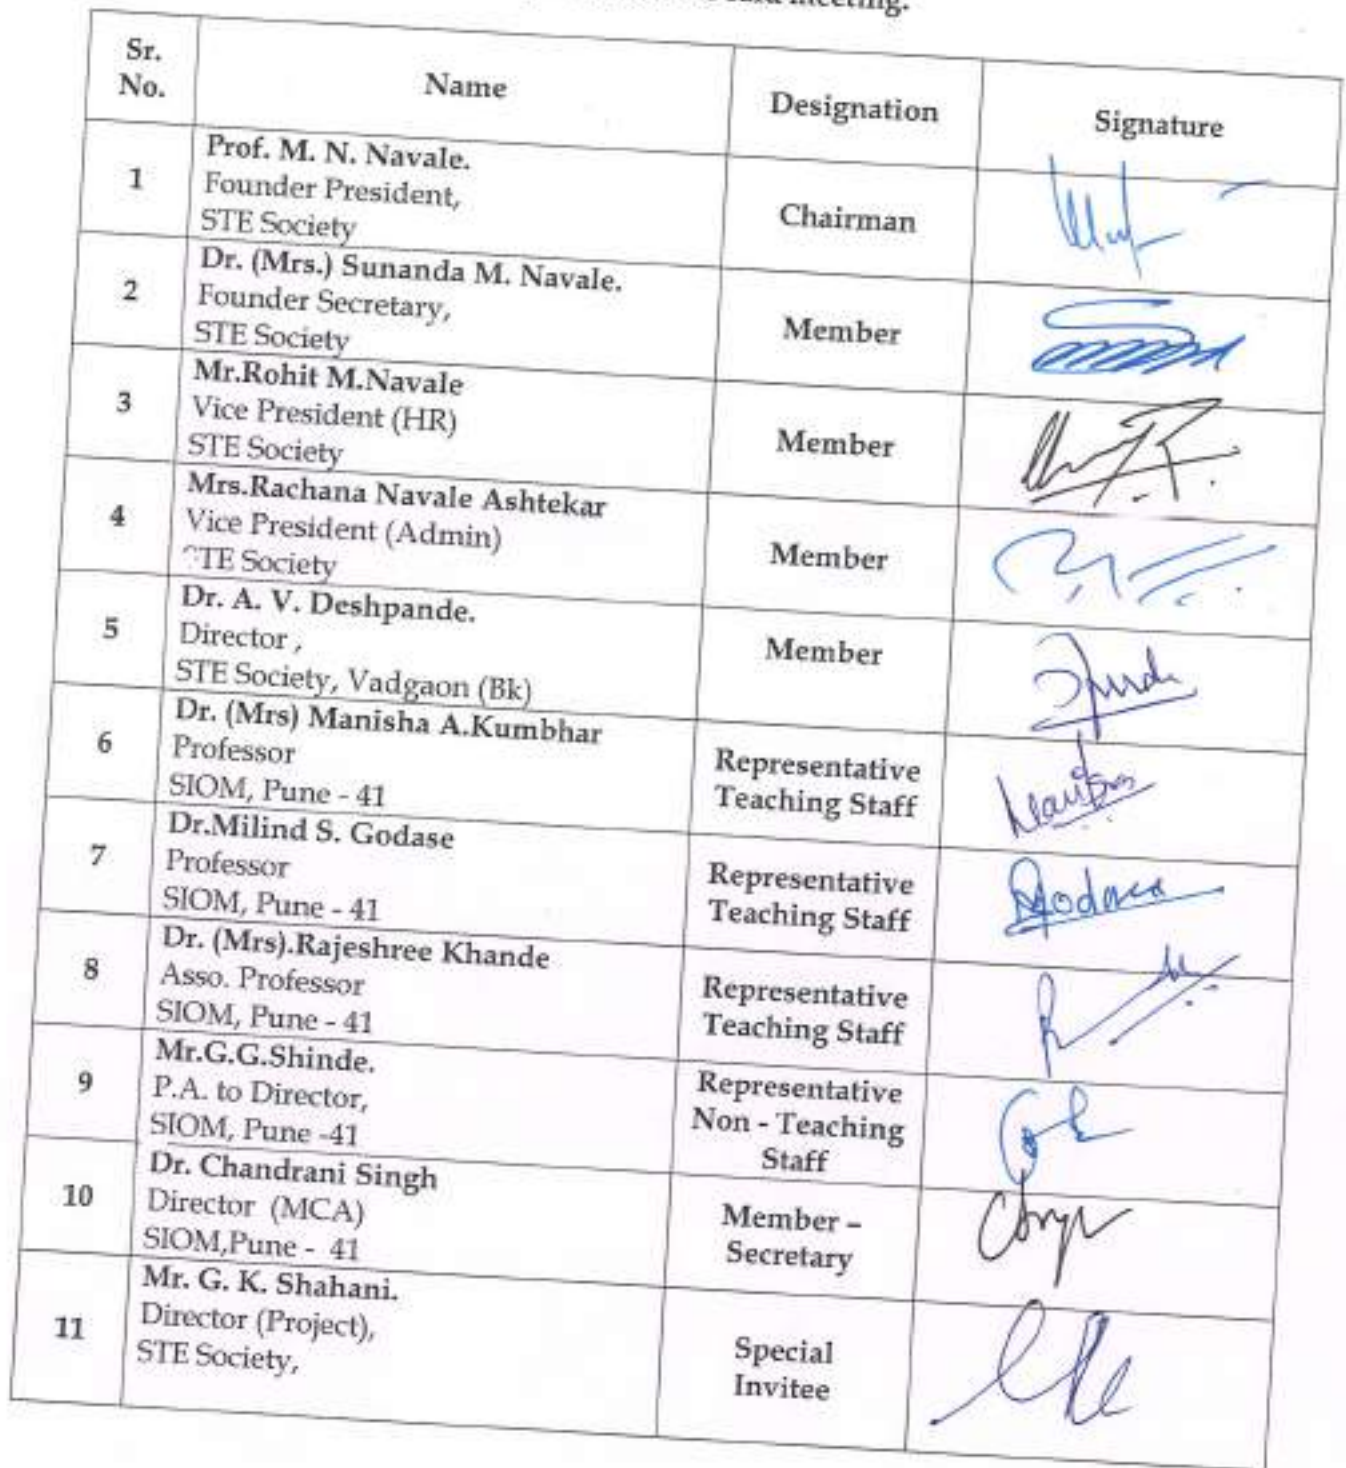 meeting.
Sr.
No.
Name
Designation
Signature
1
Prof. M. N. Navale.
Founder President,
STE Society
Chairman
2
Dr. (Mrs.) Sunanda M. Navale.
Founder Secretary,
STE Society
Member
3
Mr.Rohit M.Navale
Vice President (HR)
STE Society
Member
4
Mrs.Rachana Navale Ashtekar
Vice President (Admin)
STE Society
Member
5
Dr. A. V. Deshpande.
Director ,
STE Society, Vadgaon (Bk)
Member
6
Dr. (Mrs) Manisha A.Kumbhar
Professor
SIOM, Pune - 41
Representative
Teaching Staff
7
Dr.Milind S. Godase
Professor
SIOM, Pune - 41
Representative
Teaching Staff
Godase
8
Dr. (Mrs).Rajeshree Khande
Asso. Professor
SIOM, Pune - 41
Representative
Teaching Staff
9
Mr.G.G.Shinde.
P.A. to Director,
SIOM, Pune -41
Representative
Non - Teaching
Staff
10
Dr. Chandrani Singh
Director (MCA)
SIOM,Pune - 41
Member –
Secretary
11
Mr. G. K. Shahani.
Director (Project),
STE Society,
Special
Invitee